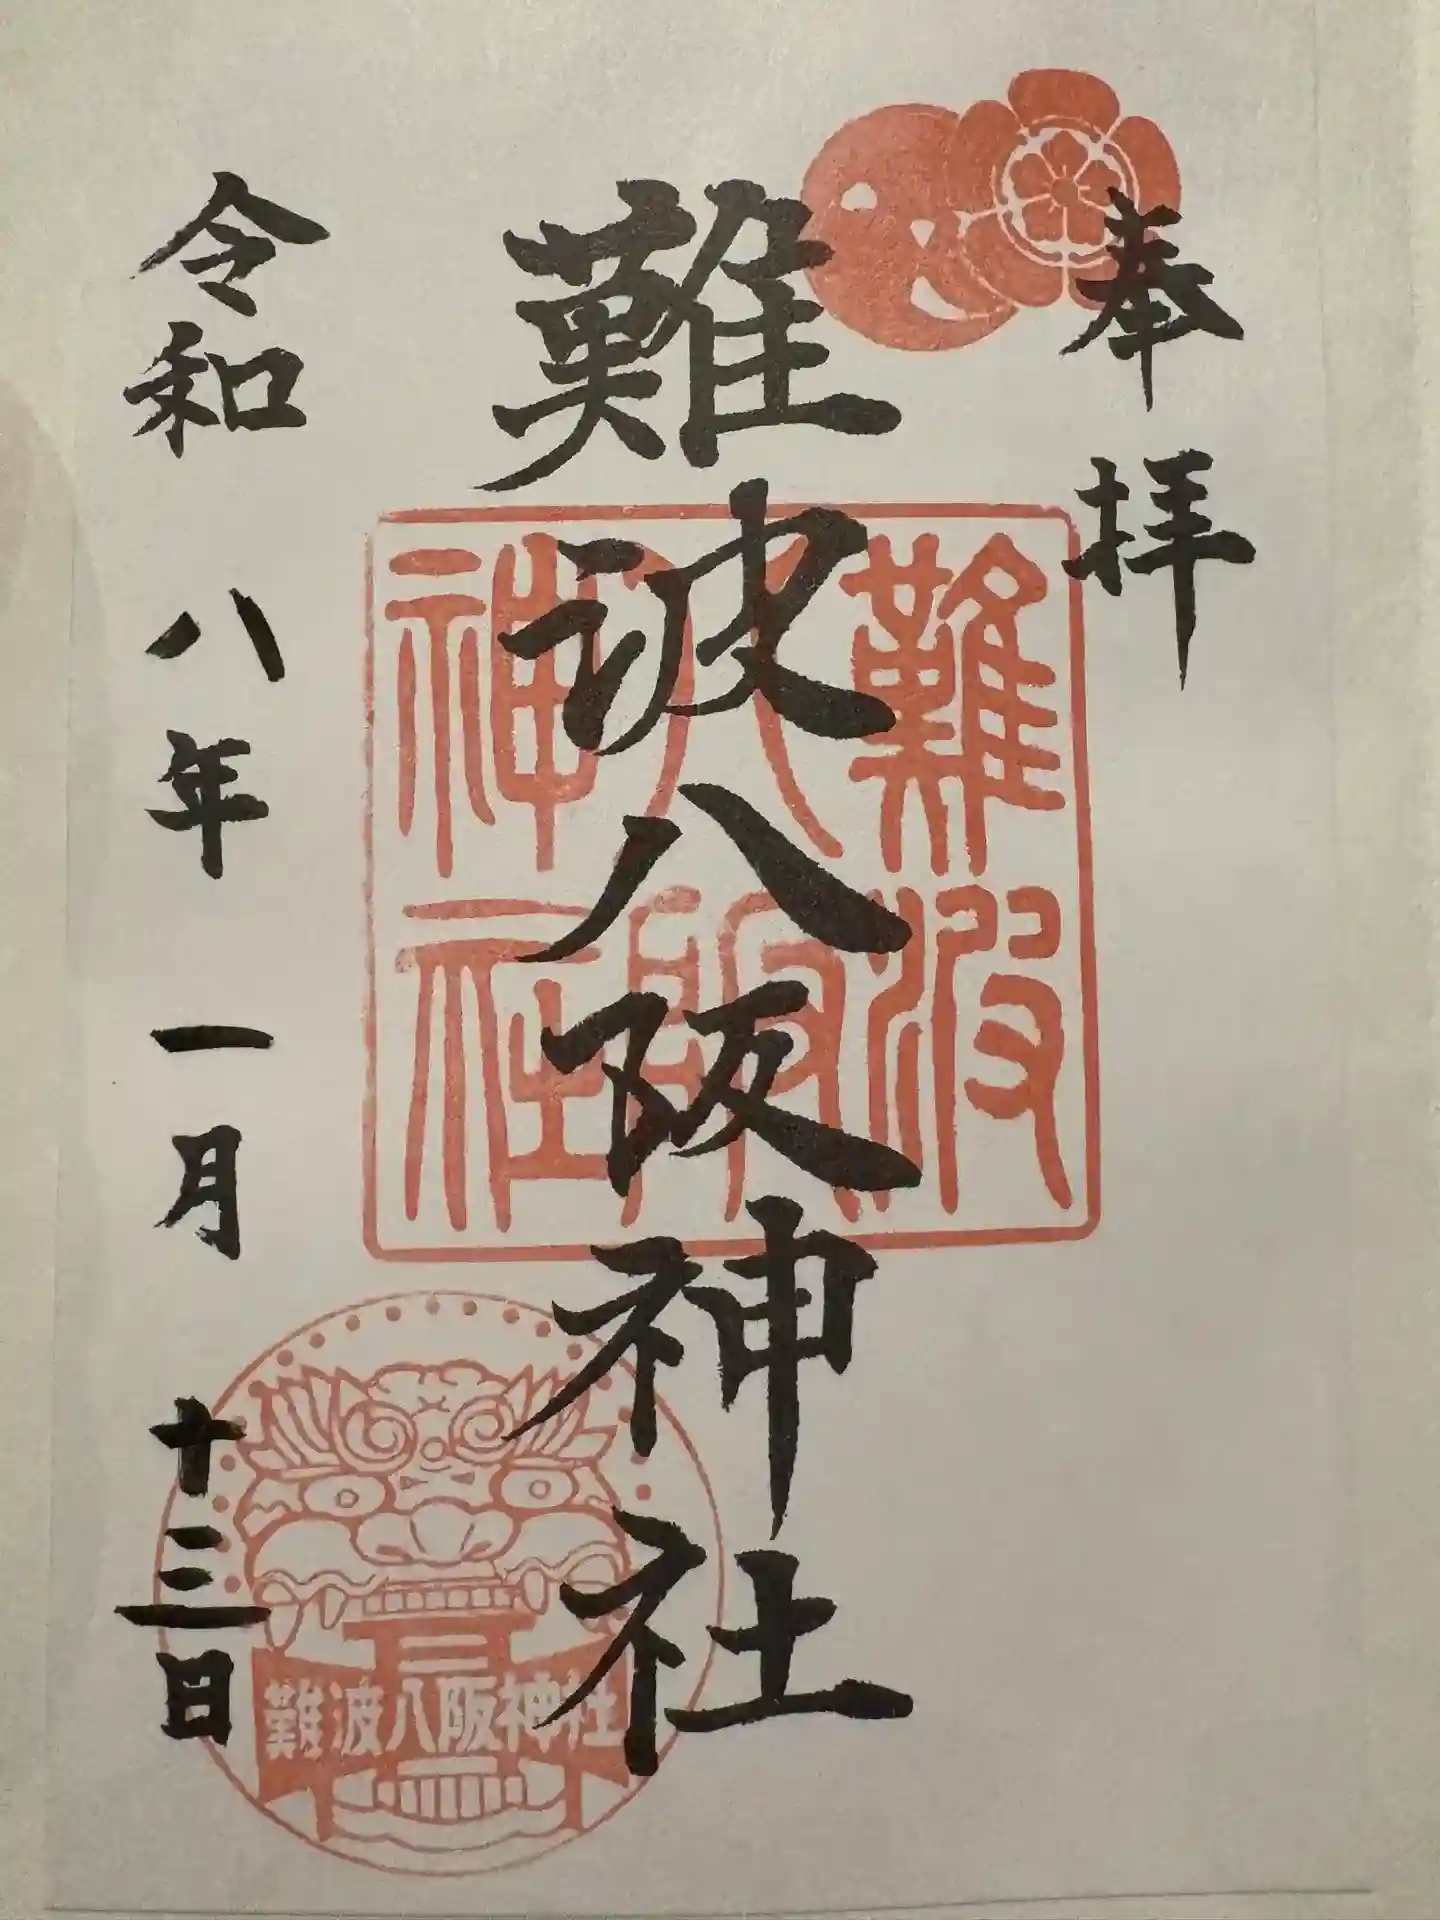 奉拝
難波八阪神社
難波
八阪
神社
難波八阪神社
令和八年一月十三日